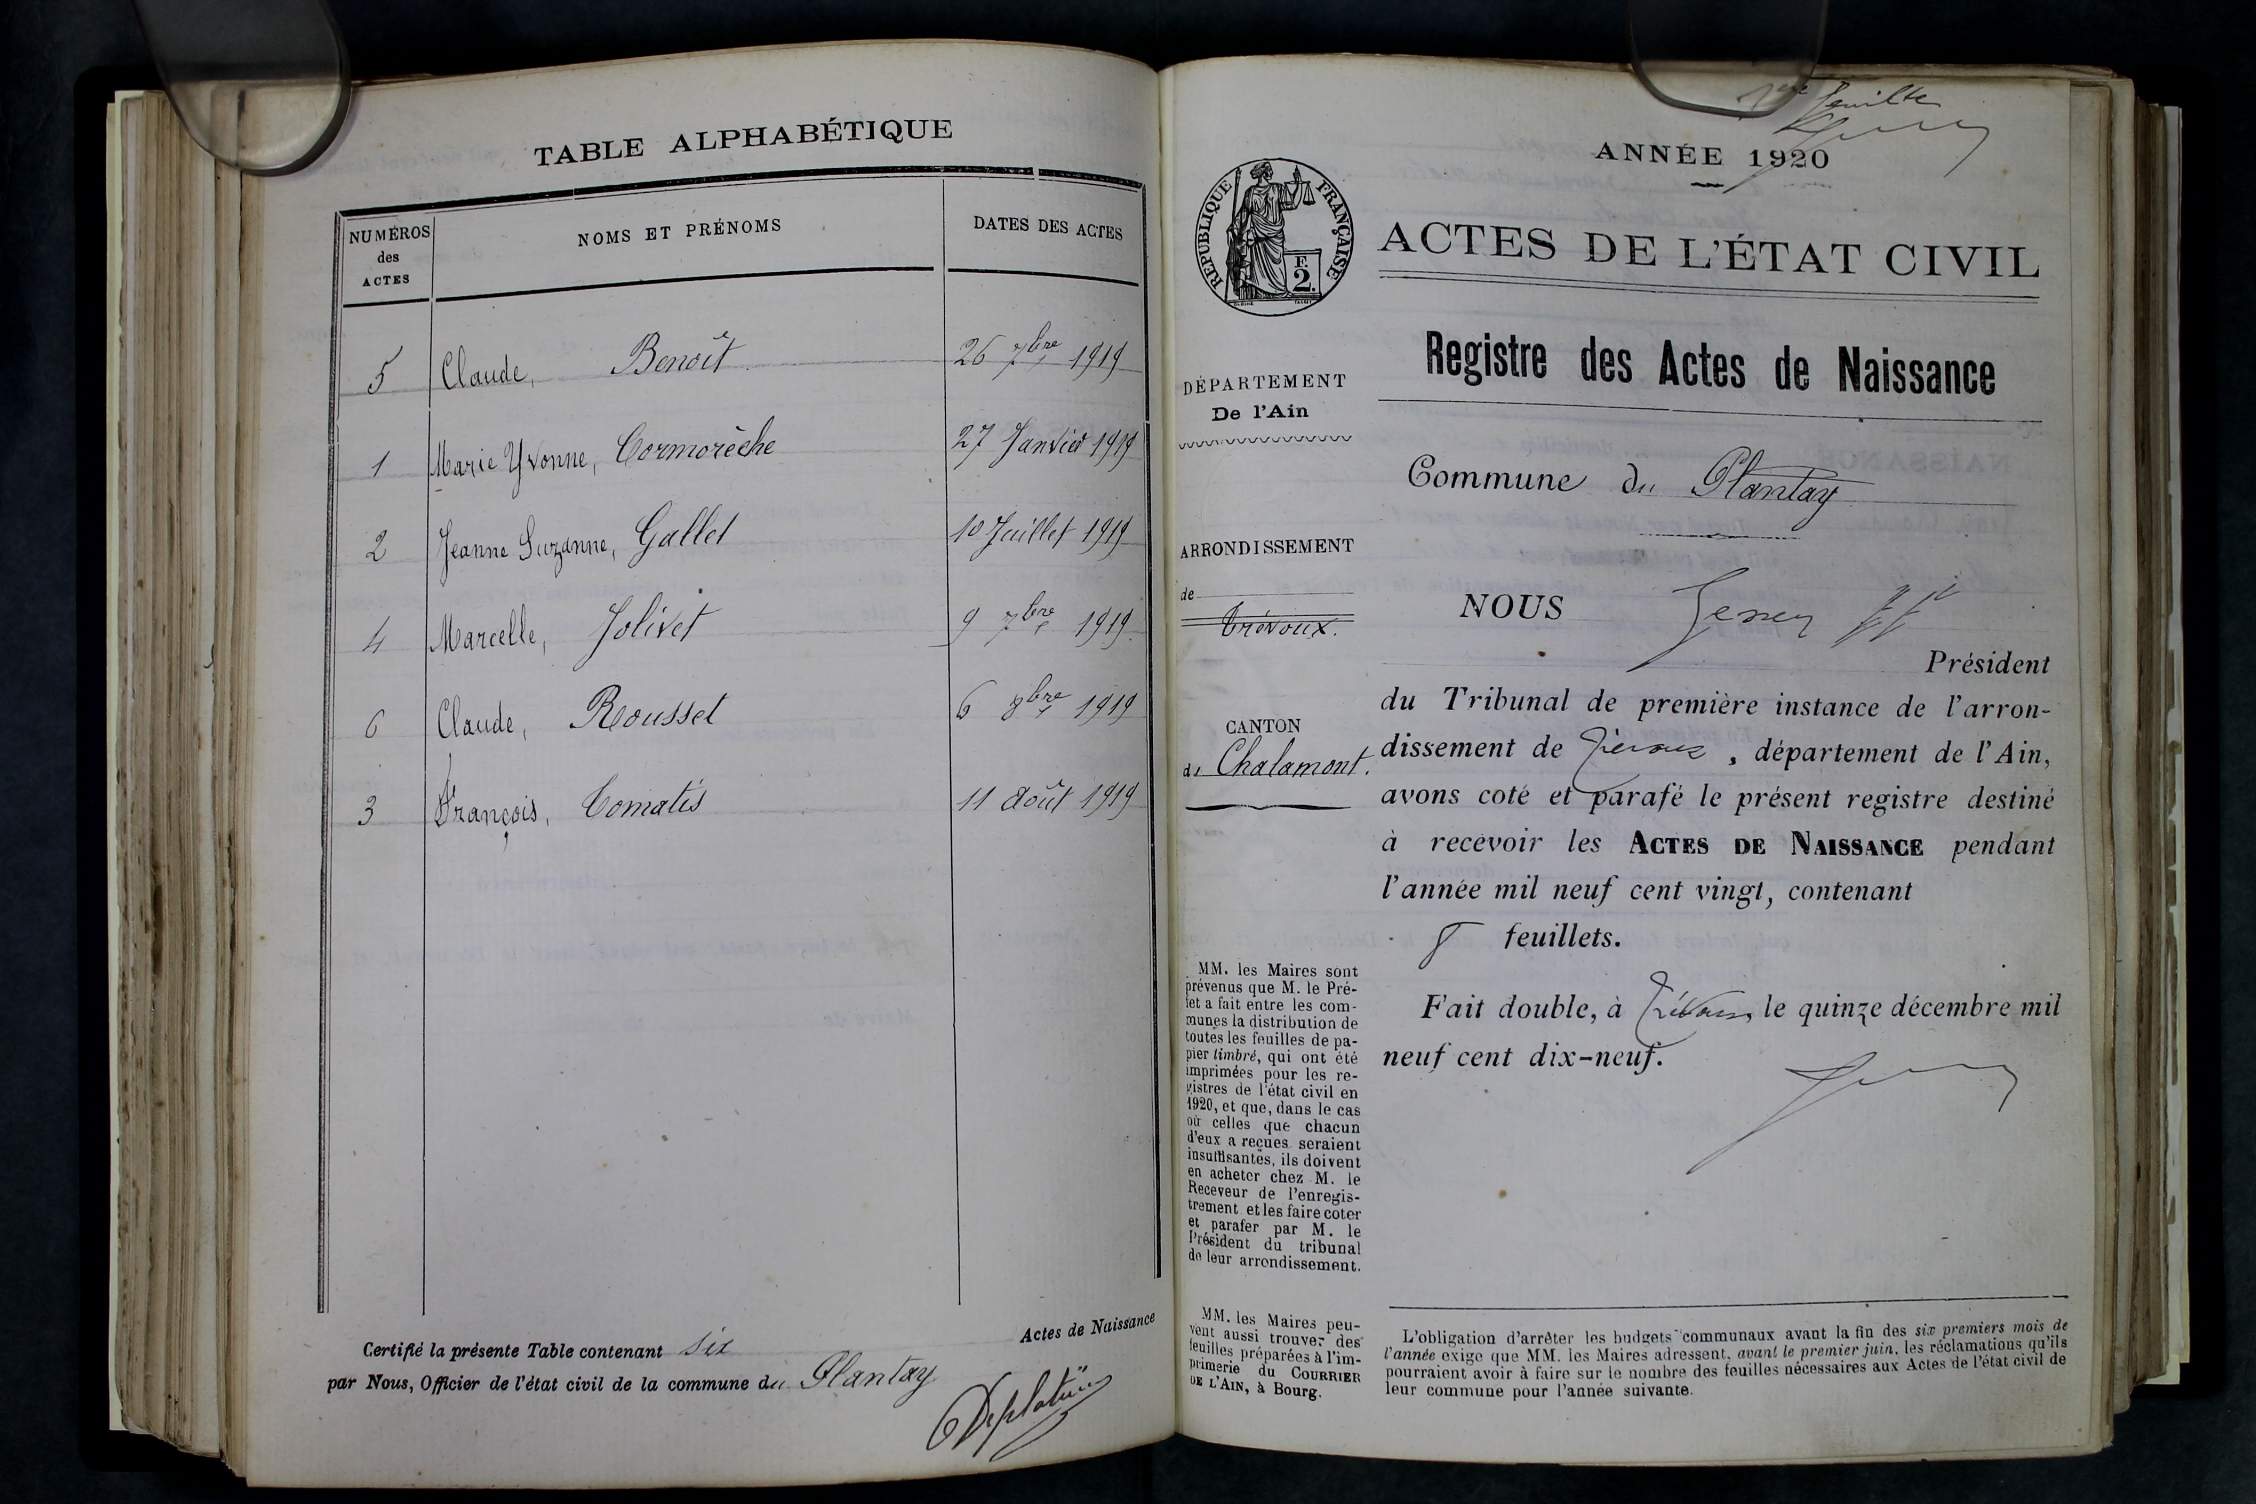 TABLE ALPHABÉTIQUE
NUMÉROS
des
ACTES
NOMS ET PRÉNOMS
DATES DES ACTES
5 Claude, Benoît 26 7bre 1919
1 Marie Yvonne, Cormorèche 27 Janvier 1919
2 Jeanne Suzanne, Gallet 10 Juillet 1919
4 Marcelle, Jolivet 9 7bre 1919
6 Claude, Rousset 6 8bre 1919
3 François, Comatis 11 août 1919
Certifié la présente Table contenant six Actes de Naissance
par Nous, Officier de l'état civil de la commune du Plantay
1ere feuille
ANNÉE 1920
RÉPUBLIQUE FRANÇAISE
F.
2.
ACTES DE L'ÉTAT CIVIL
Registre des Actes de Naissance
DÉPARTEMENT
De l'Ain
ARRONDISSEMENT
de
Trévoux.
CANTON
de Chalamont.
MM. les Maires sont
prévenus que M. le Pré-
fet a fait entre les com-
munes la distribution de
toutes les feuilles de pa-
pier timbré, qui ont été
imprimées pour les re-
gistres de l'état civil en
1920, et que, dans le cas
où celles que chacun
d'eux a reçues seraient
insuffisantes, ils doivent
en acheter chez M. le
Receveur de l'enregis-
trement et les faire coter
et parafer par M. le
Président du tribunal
de leur arrondissement.
MM. les Maires peu-
vent aussi trouver des
feuilles préparées à l'im-
primerie du COURRIER
DE L'AIN, à Bourg.
Commune du Plantay
NOUS
Président
du Tribunal de première instance de l'arron-
dissement de Trévoux, département de l'Ain,
avons coté et parafé le présent registre destiné
à recevoir les ACTES DE NAISSANCE pendant
l'année mil neuf cent vingt, contenant
8 feuillets.
Fait double, à Trévoux, le quinze décembre mil
neuf cent dix-neuf.
L'obligation d'arrêter les budgets communaux avant la fin des six premiers mois de
l'année exige que MM. les Maires adressent, avant le premier juin, les réclamations qu'ils
pourraient avoir à faire sur le nombre des feuilles nécessaires aux Actes de l'état civil de
leur commune pour l'année suivante.